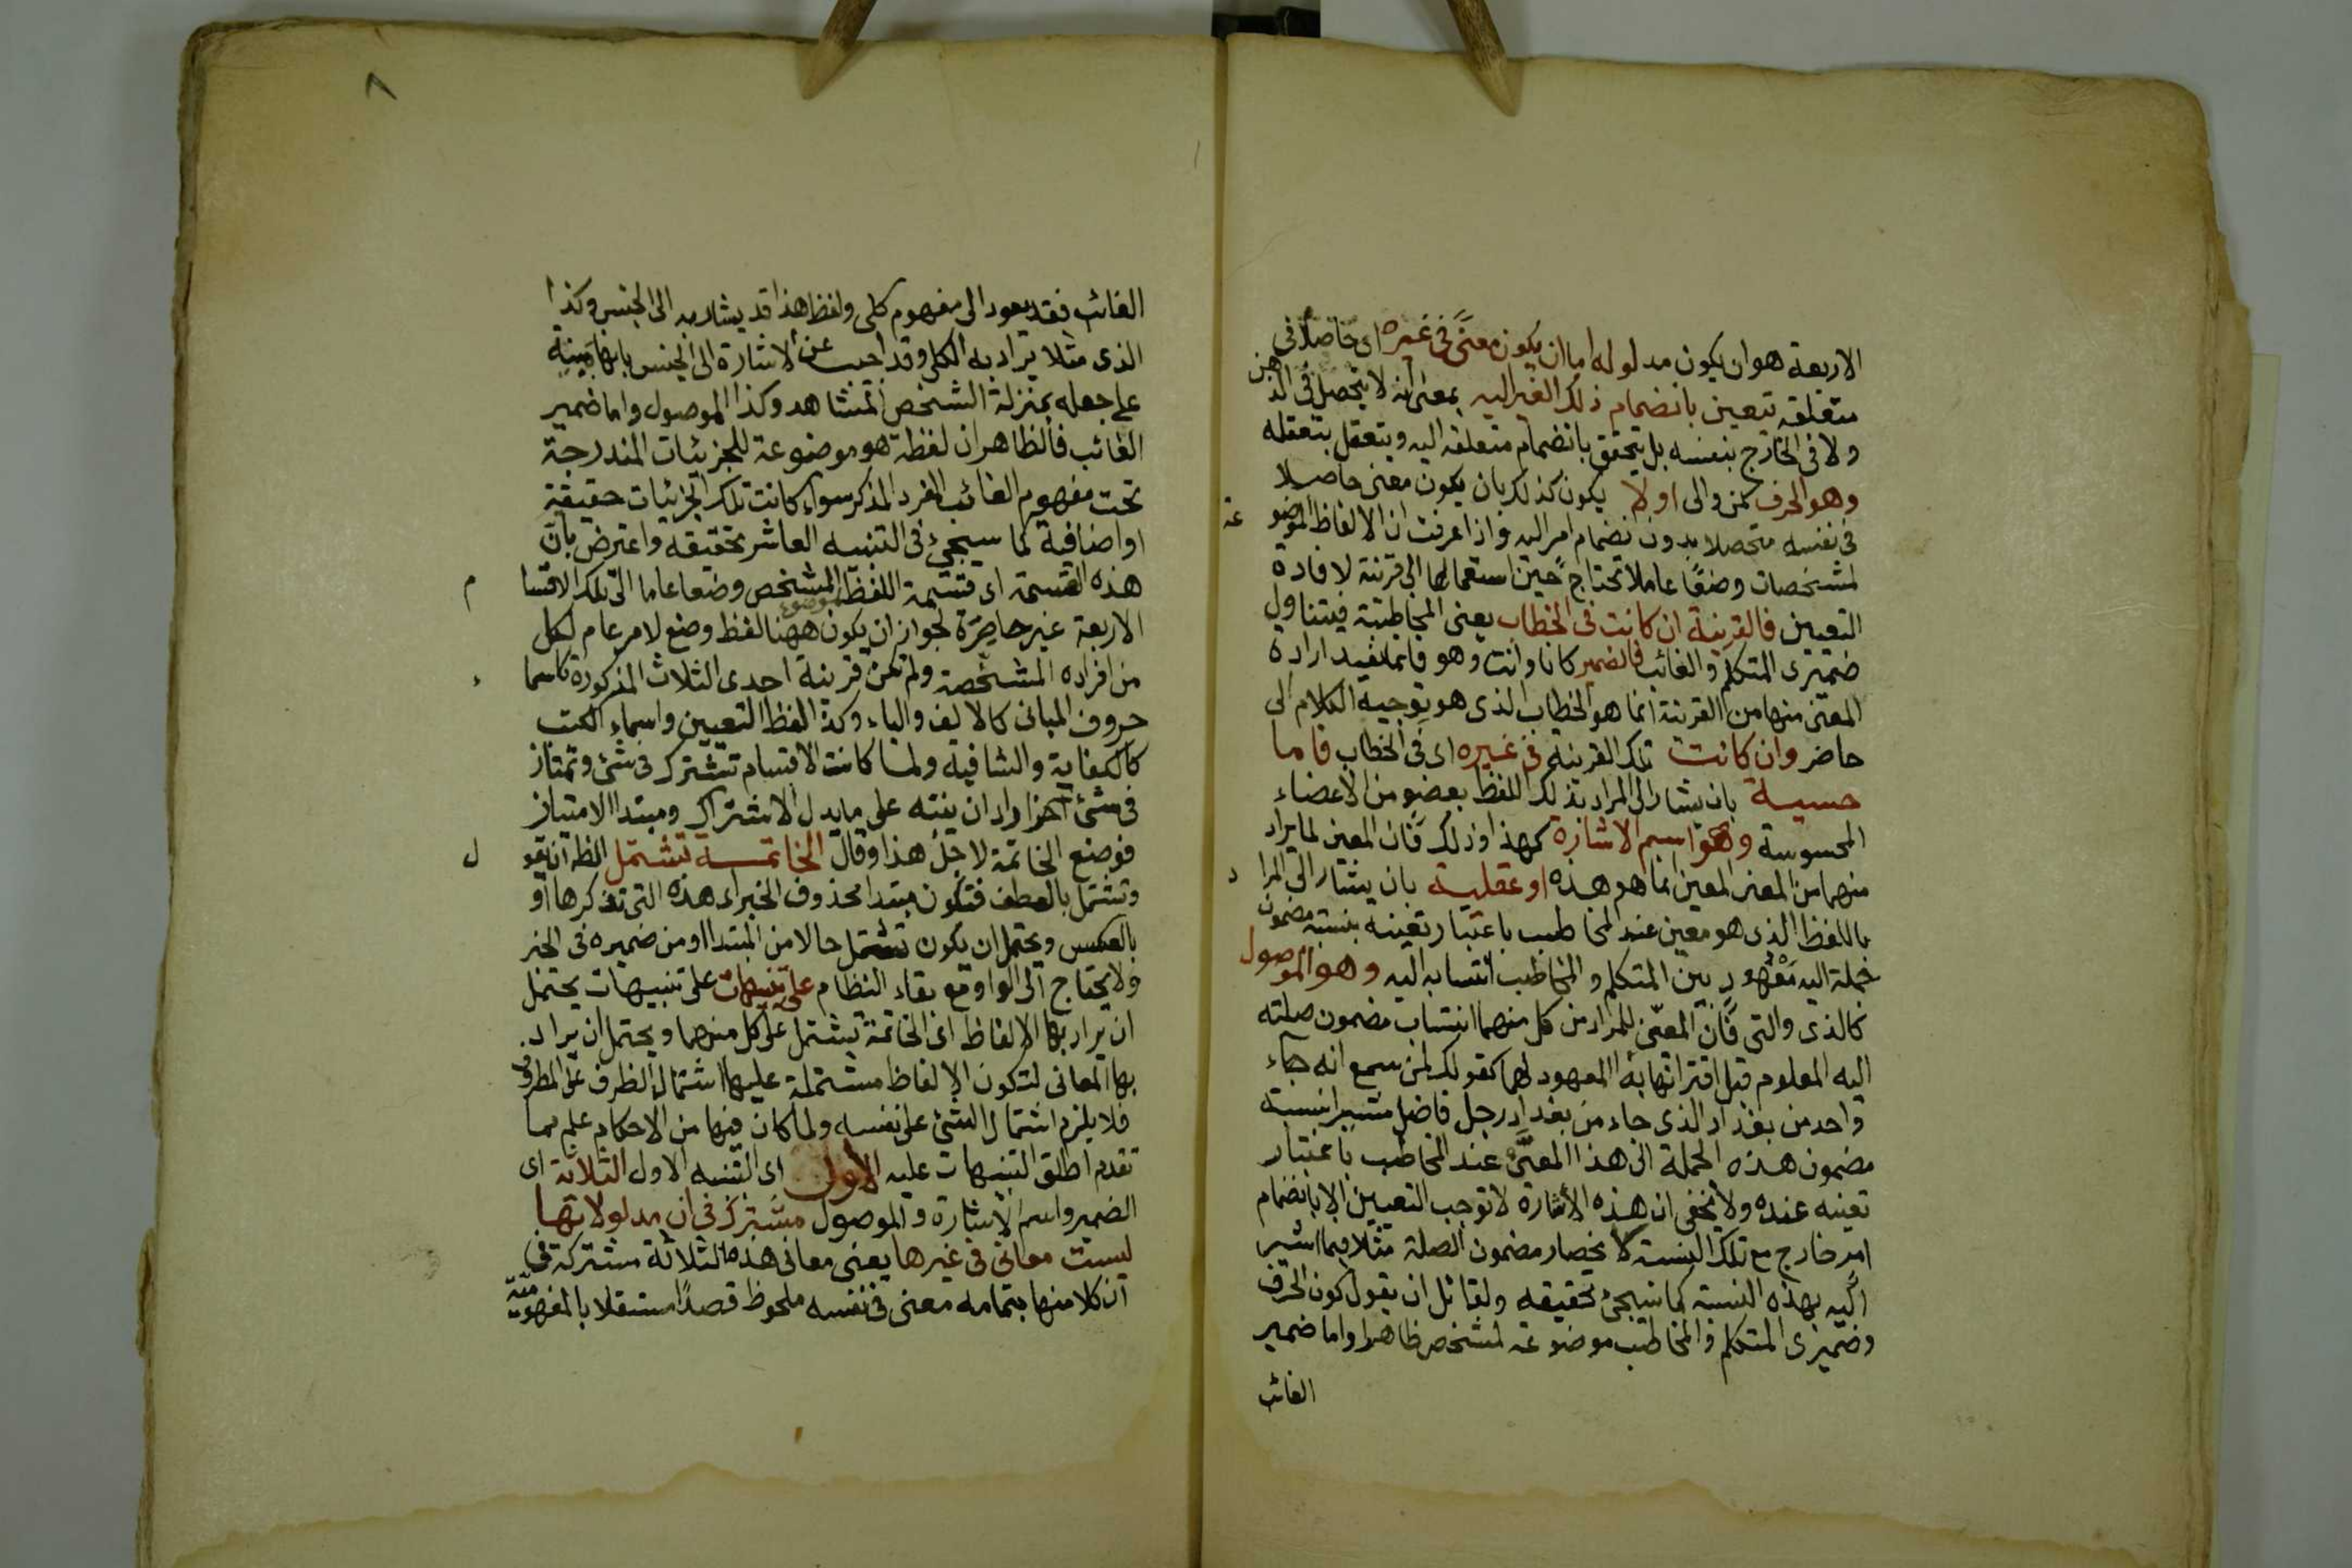 الاربعة هو ان يكون مدلوله اما ان يكون معنًى فى غيره اى حاصلا فى
متعلقه تتعين بانضمام ذلك الغير اليه بمعنى انه لا يتحصل فى الذهن
ولا فى الخارج بنفسه بل يتحقق بانضمام متعلقه اليه ويتعقل بتعقله
وهو الحرف كمن والى او لا يكون كذلك بان يكون معنى حاصلا
فى نفسه متحصلا بدون انضمام امر اليه واذا عرفت ان الالفاظ الموضوعة
لمشخصات وضعًا عاملا تحتاج حين استعمالها الى قرينة لافادة
التعيين فالقرينة ان كانت فى الخطاب يعنى المخاطبة فيتناول
ضميرى المتكلم والغائب فالضمير كانا وانت وهو فانما يفيد ارادة
المعين منها من القرينة انما هو الخطاب الذى هو توجيه الكلام الى
حاضر وان كانت تلك القرينة فى غيره اى فى الخطاب فاما
حسية بان يشار الى المراد بذلك اللفظ بعضو من الاعضاء
المحسوسة وهو اسم الاشارة كهذا وذلك فان المعين لما يراد
منهما من المعنى المعين انما هو هذه او عقلية بان يشار الى المراد
باللفظ الذى هو معين عند المخاطب باعتبار تعينه بنسبة مضمون
جملة اليه معهود بين المتكلم والمخاطب انتسابه اليه وهو الموصول
كالذى والتى فان المعين للمراد من كل منهما انتساب مضمون صلته
اليه المعلوم قبل اقترانها به المعهود لهما كقولك لمن سمع انه جاء
واحد من بغداد الذى جاء من بغداد رجل فاضل مشيرا بنسبة
مضمون هذه الجملة الى هذا المعين عند المخاطب باعتبار
تعينه عنده ولا يخفى ان هذه الاشارة لا توجب التعيين الا بانضمام
امر خارج مع تلك النسبة كانحصار مضمون الصلة مثلا فيما اشير
اليه بهذه النسبة كما سيجئ تحقيقه ولقائل ان يقول كون الحرف
وضميرى المتكلم والمخاطب موضوعة لمشخص ظاهر واما ضمير
الغائب
٨
الغائب فقد يعود الى مفهوم كلى ولفظ هذا قد يشار به الى الجنس وكذا
الذى مثلا يراد به الكلى وقد اجيب عن الاشارة الى الجنس بانها مبينة
على جعله بمنزلة الشخص المشاهد وكذا الموصول واما ضمير
الغائب فالظاهر ان لفظة هو موضوعة للجزئيات المندرجة
تحت مفهوم الغائب المفرد المذكر سواء كانت تلك الجزئيات حقيقة
او اضافية كما سيجئ فى التنبيه العاشر تحقيقه واعترض بان
هذه القسمة اى قسمة اللفظ الموضوع المشخص وضعا عاما الى تلك الاقسام
الاربعة غير حاصرة لجواز ان يكون ههنا لفظ وضع لامر عام لكل
من افراده المشخصة ولم تكن قرينة احدى الثلاث المذكورة كاسماء
حروف المبانى كالالف والباء وكذا لفظ التعيين واسماء الكتب
كالكفاية والشافية ولما كانت الاقسام تشترك فى شئ وتمتاز
فى شئ آخر اراد ان ينبه على ما يدل الاشتراك ومبتدا الامتياز
فوضع الخاتمة لاجل هذا وقال الخاتمة تشتمل الظ ان يقول
وتشتمل بالعطف فتكون مبتدا محذوف الخبر اى هذه التى تذكرها او
بالعكس ويحتمل ان يكون تشتمل حالا من المبتدا او من ضميره فى الخبر
ولا يحتاج الى الواو مع بقاء النظام على تنبيهات على تنبيهات يحتمل
ان يراد بها الالفاظ اى الخاتمة تشتمل على كل منهما ويحتمل ان يراد
بها المعانى لتكون الالفاظ مشتملة عليها اشتمال الظرف على المظروف
فلا يلزم اشتمال الشئ على نفسه ولما كان فيها من الاحكام علم مما
تقدم اطلق التنبيهات عليه الاول اى التنبيه الاول الثلاثة اى
الضمير واسم الاشارة والموصول مشترك فى ان مدلولاتها
ليست معانى فى غيرها يعنى معانى هذه الثلاثة مشتركة فى
ان كلا منها بتمامه معنى فى نفسه ملحوظ قصدًا مستقلا بالمفهومية